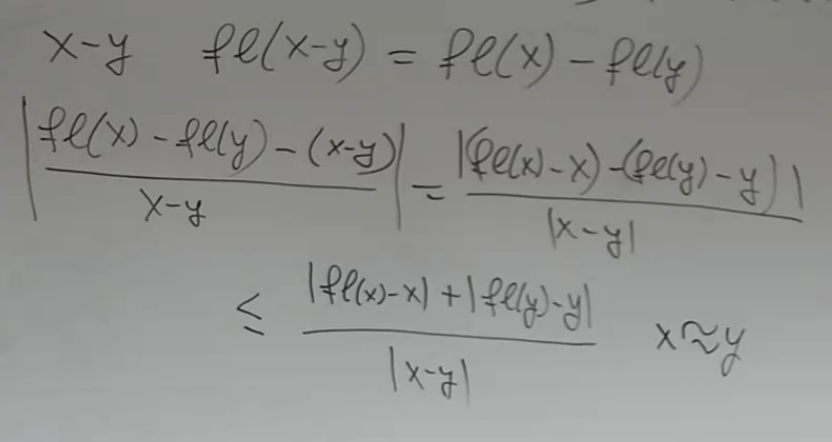 x-y fl(x-y) = fl(x) - fl(y)
|fl(x) - fl(y) - (x-y) / x-y| = |(fl(x) - x) - (fl(y) - y)| / |x-y|
≤ |fl(x)-x| + |fl(y)-y| / |x-y| x≈y